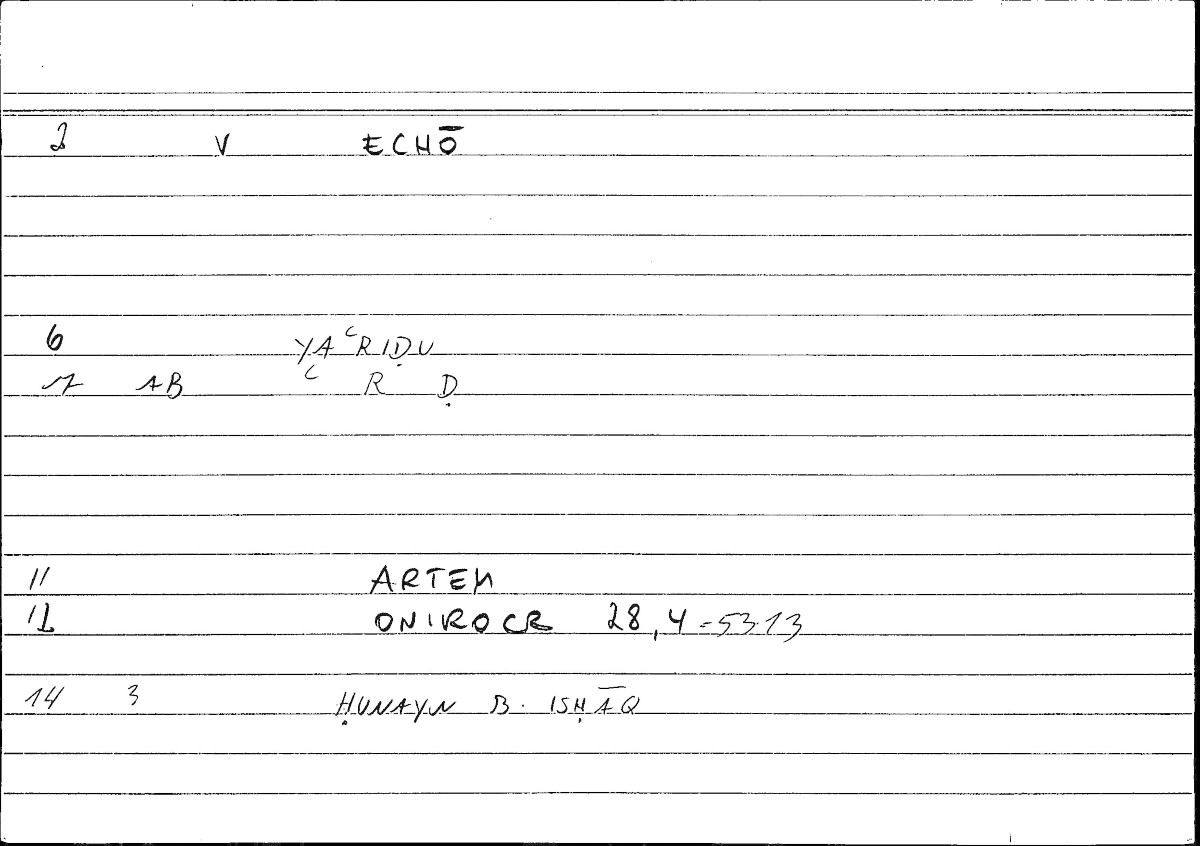 2 V ECHŌ
6 YAʿRIḌU
17 AB ʿ R Ḍ
11 ARTEM
12 ONIROCR 28,4 = 53.13
14 3 ḤUNAYN B. ISḤĀQ